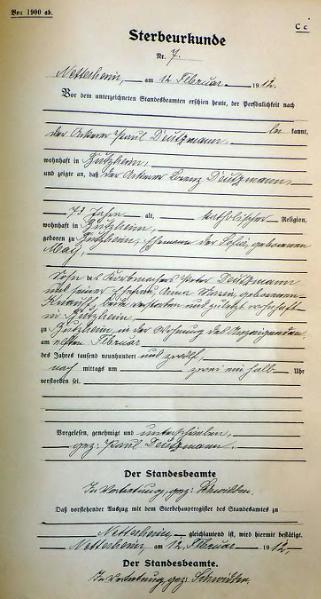 Vor. 1900 ab.
C c
Sterbeurkunde
Nr. 7.
Nettersheim, am 12. Februar 1912.
Vor dem unterzeichneten Standesbeamten erschien heute, der Persönlichkeit nach
kannt,
der Ackerer Paul Deutzmann,
wohnhaft in
und zeigte an, daß der Ackerer Franz Deutzmann,
Jahre alt, katholischer Religion,
wohnhaft in
geboren zu Ehemann der geborenen
Sohn des Deutzmann
und seiner Ehefrau Anna geborenen
beide verstorben und zuletzt wohnhaft
in
zu in der Wohnung des Anzeigenden,
am elften Februar
des Jahres tausend neunhundert und zwölf,
nach mittags um zwei ein halb Uhr
verstorben sei.
Vorgelesen, genehmigt und unterschrieben,
gez. Paul Deutzmann.
Der Standesbeamte
In Vertretung, gez.
Daß vorstehender Auszug mit dem Sterbehauptregister des Standesamtes zu
Nettersheim gleichlautend ist, wird hiermit bestätigt.
Nettersheim, am 12. Februar 1912.
Der Standesbeamte.
In Vertretung, gez.